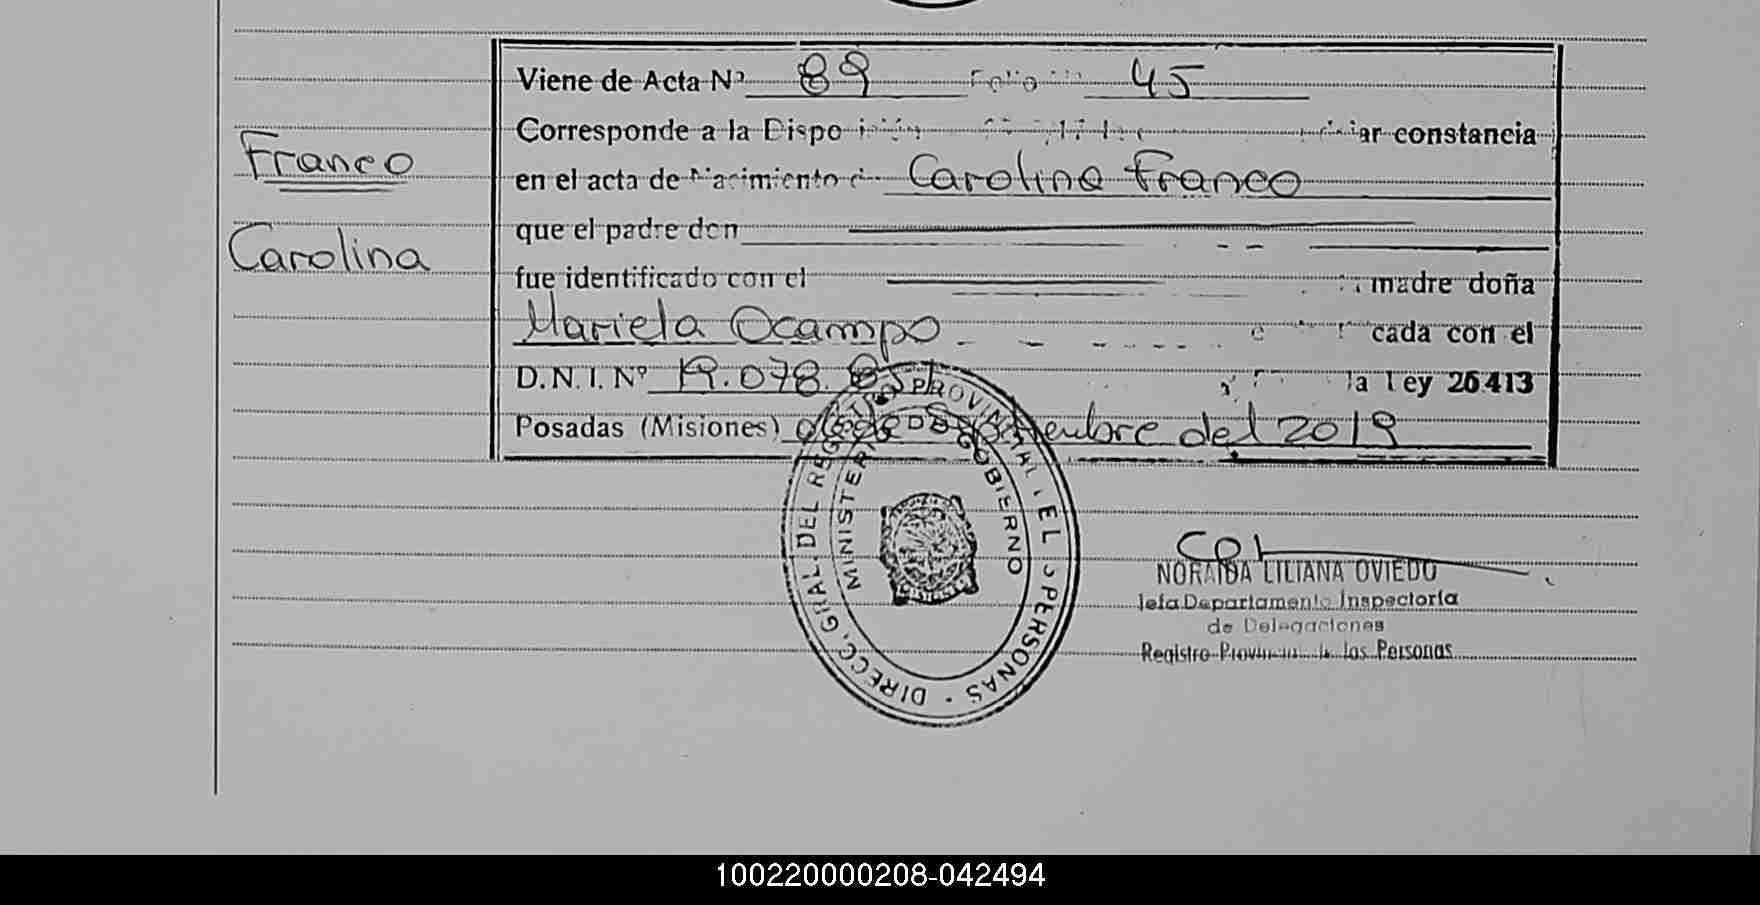 Viene de Acta Nº 89 Folio 45
Corresponde a la ar constancia
Franco
en el acta de Nacimiento Carolina Franco
que el padre don
Carolina
fue identificado con el madre doña
Mariela Ocampo cada con el
D.N.I. Nº 19.078. la Ley 26413
Posadas (Misiones) de Septiembre del 2019
DIRECC. GRAL. DEL REGISTRO PROVINCIAL DE PERSONAS
MINISTERIO DE GOBIERNO
NORAIDA LILIANA OVIEDO
Jefa Departamento Inspectoría
de Delegaciones
Registro Provincial de las Personas
100220000208-042494